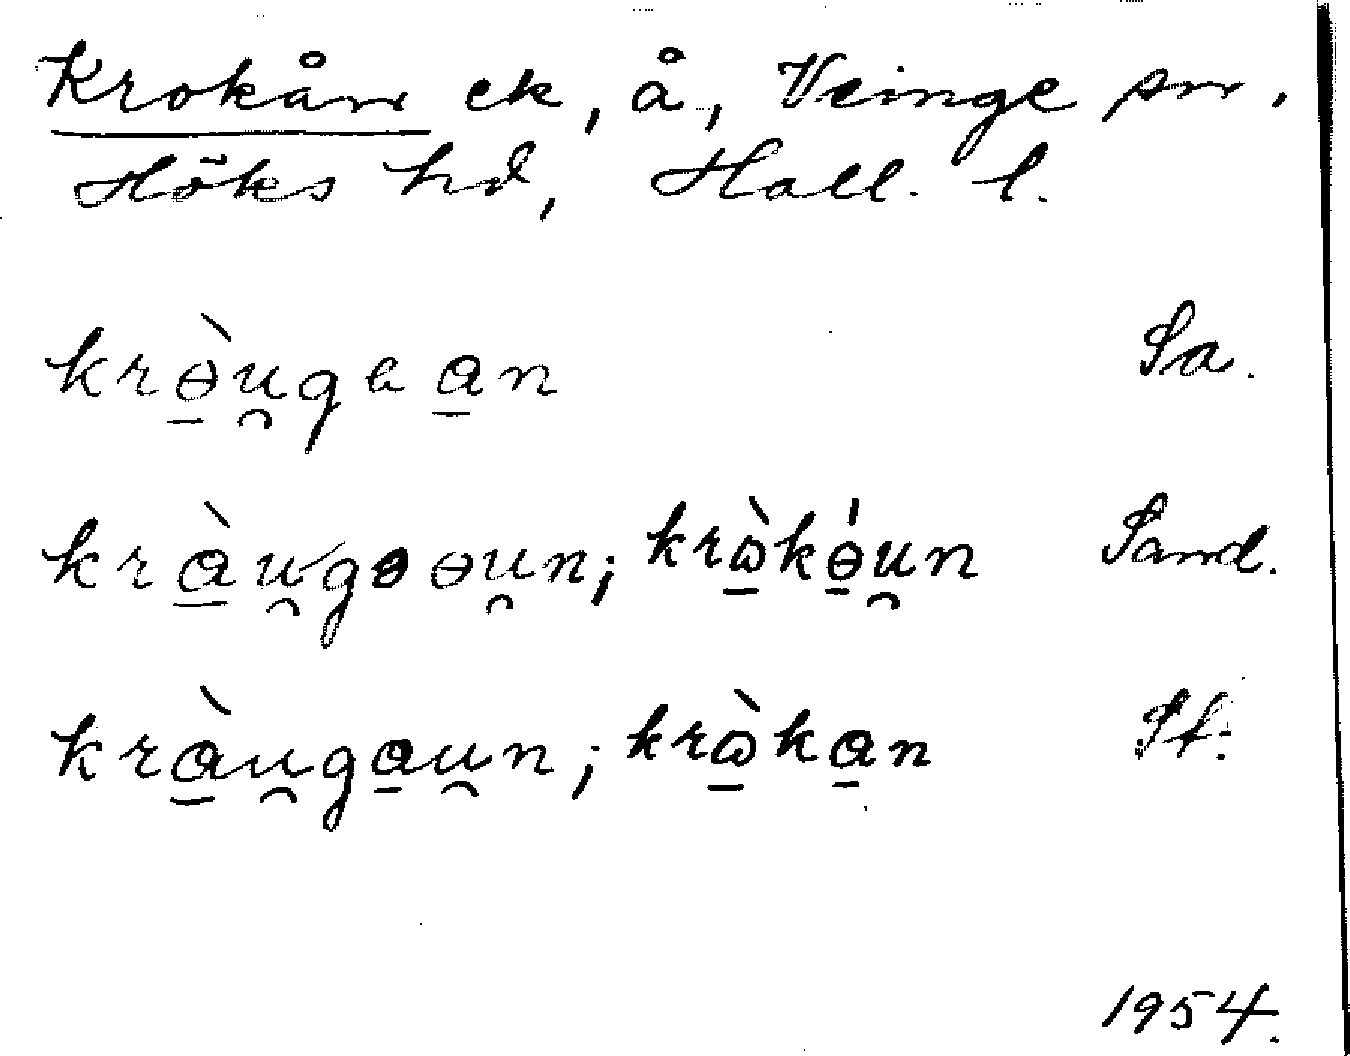 Krokån ek, å, Veinge sn,
Höks hd, Hall. l.
krɵ̠̀u̯gea̠n Sa.
krà̠u̯gəɵu̯n; krɷ̠̀kɵ̠́u̯n Sand.
krà̠u̯ga̠u̯n; krɷ̠̀ka̠n St.
1954.